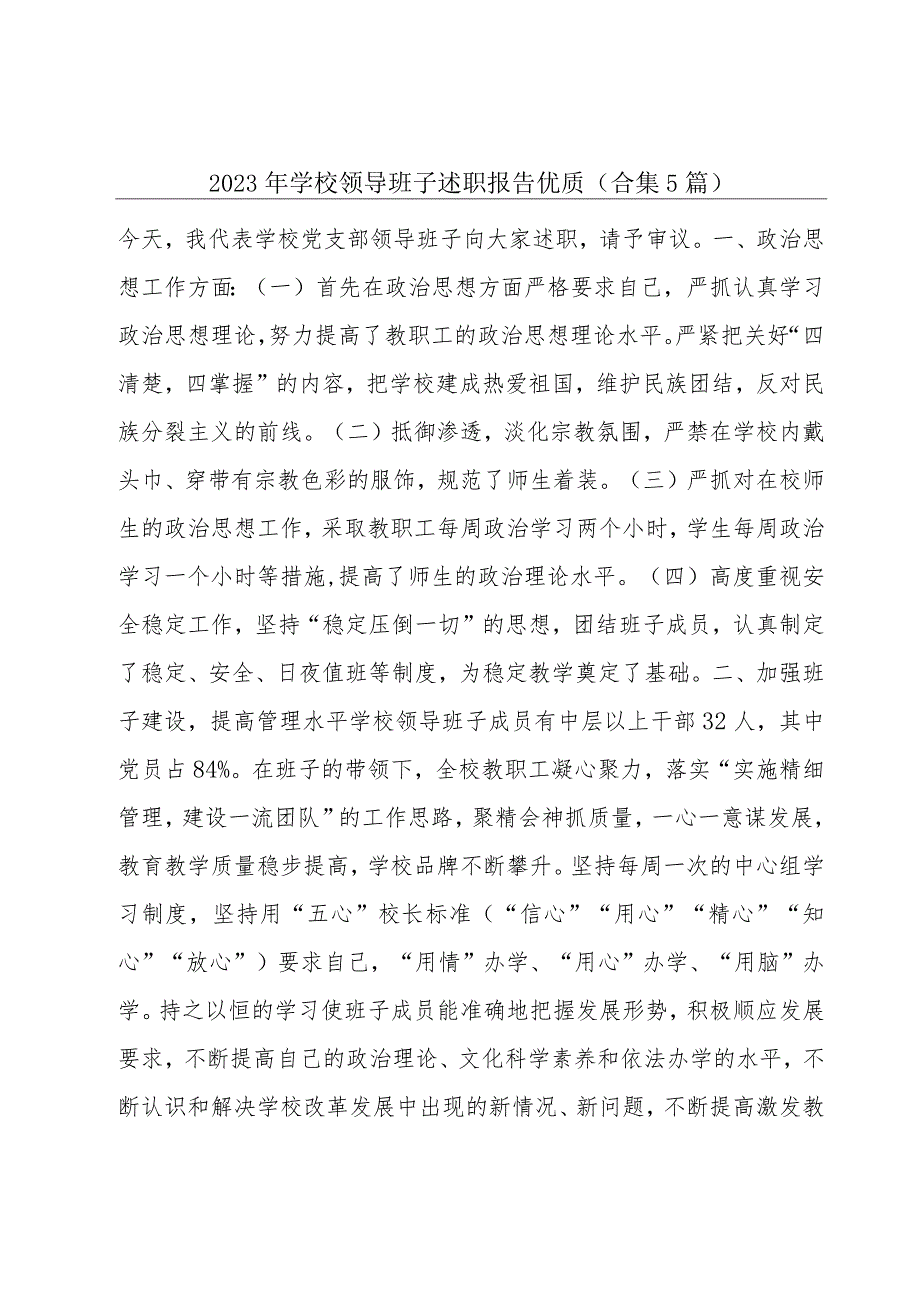 2023年学校领导班子述职报告优质（合集5篇）
今天，我代表学校党支部领导班子向大家述职，请予审议。一、政治思
想工作方面：（一）首先在政治思想方面严格要求自己，严抓认真学习
政治思想理论，努力提高了教职工的政治思想理论水平。严紧把关好“四
清楚，四掌握”的内容，把学校建成热爱祖国，维护民族团结，反对民
族分裂主义的前线。（二）抵御渗透，淡化宗教氛围，严禁在学校内戴
头巾、穿带有宗教色彩的服饰，规范了师生着装。（三）严抓对在校师
生的政治思想工作，采取教职工每周政治学习两个小时，学生每周政治
学习一个小时等措施,提高了师生的政治理论水平。（四）高度重视安
全稳定工作，坚持“稳定压倒一切”的思想，团结班子成员，认真制定
了稳定、安全、日夜值班等制度，为稳定教学奠定了基础。二、加强班
子建设，提高管理水平学校领导班子成员有中层以上干部32人，其中
党员占84%。在班子的带领下，全校教职工凝心聚力，落实“实施精细
管理，建设一流团队”的工作思路，聚精会神抓质量，一心一意谋发展，
教育教学质量稳步提高，学校品牌不断攀升。坚持每周一次的中心组学
习制度，坚持用“五心”校长标准（“信心”“用心”“精心”“知
心”“放心”）要求自己，“用情”办学、“用心”办学、“用脑”办
学。持之以恒的学习使班子成员能准确地把握发展形势，积极顺应发展
要求，不断提高自己的政治理论、文化科学素养和依法办学的水平，不
断认识和解决学校改革发展中出现的新情况、新问题，不断提高激发教